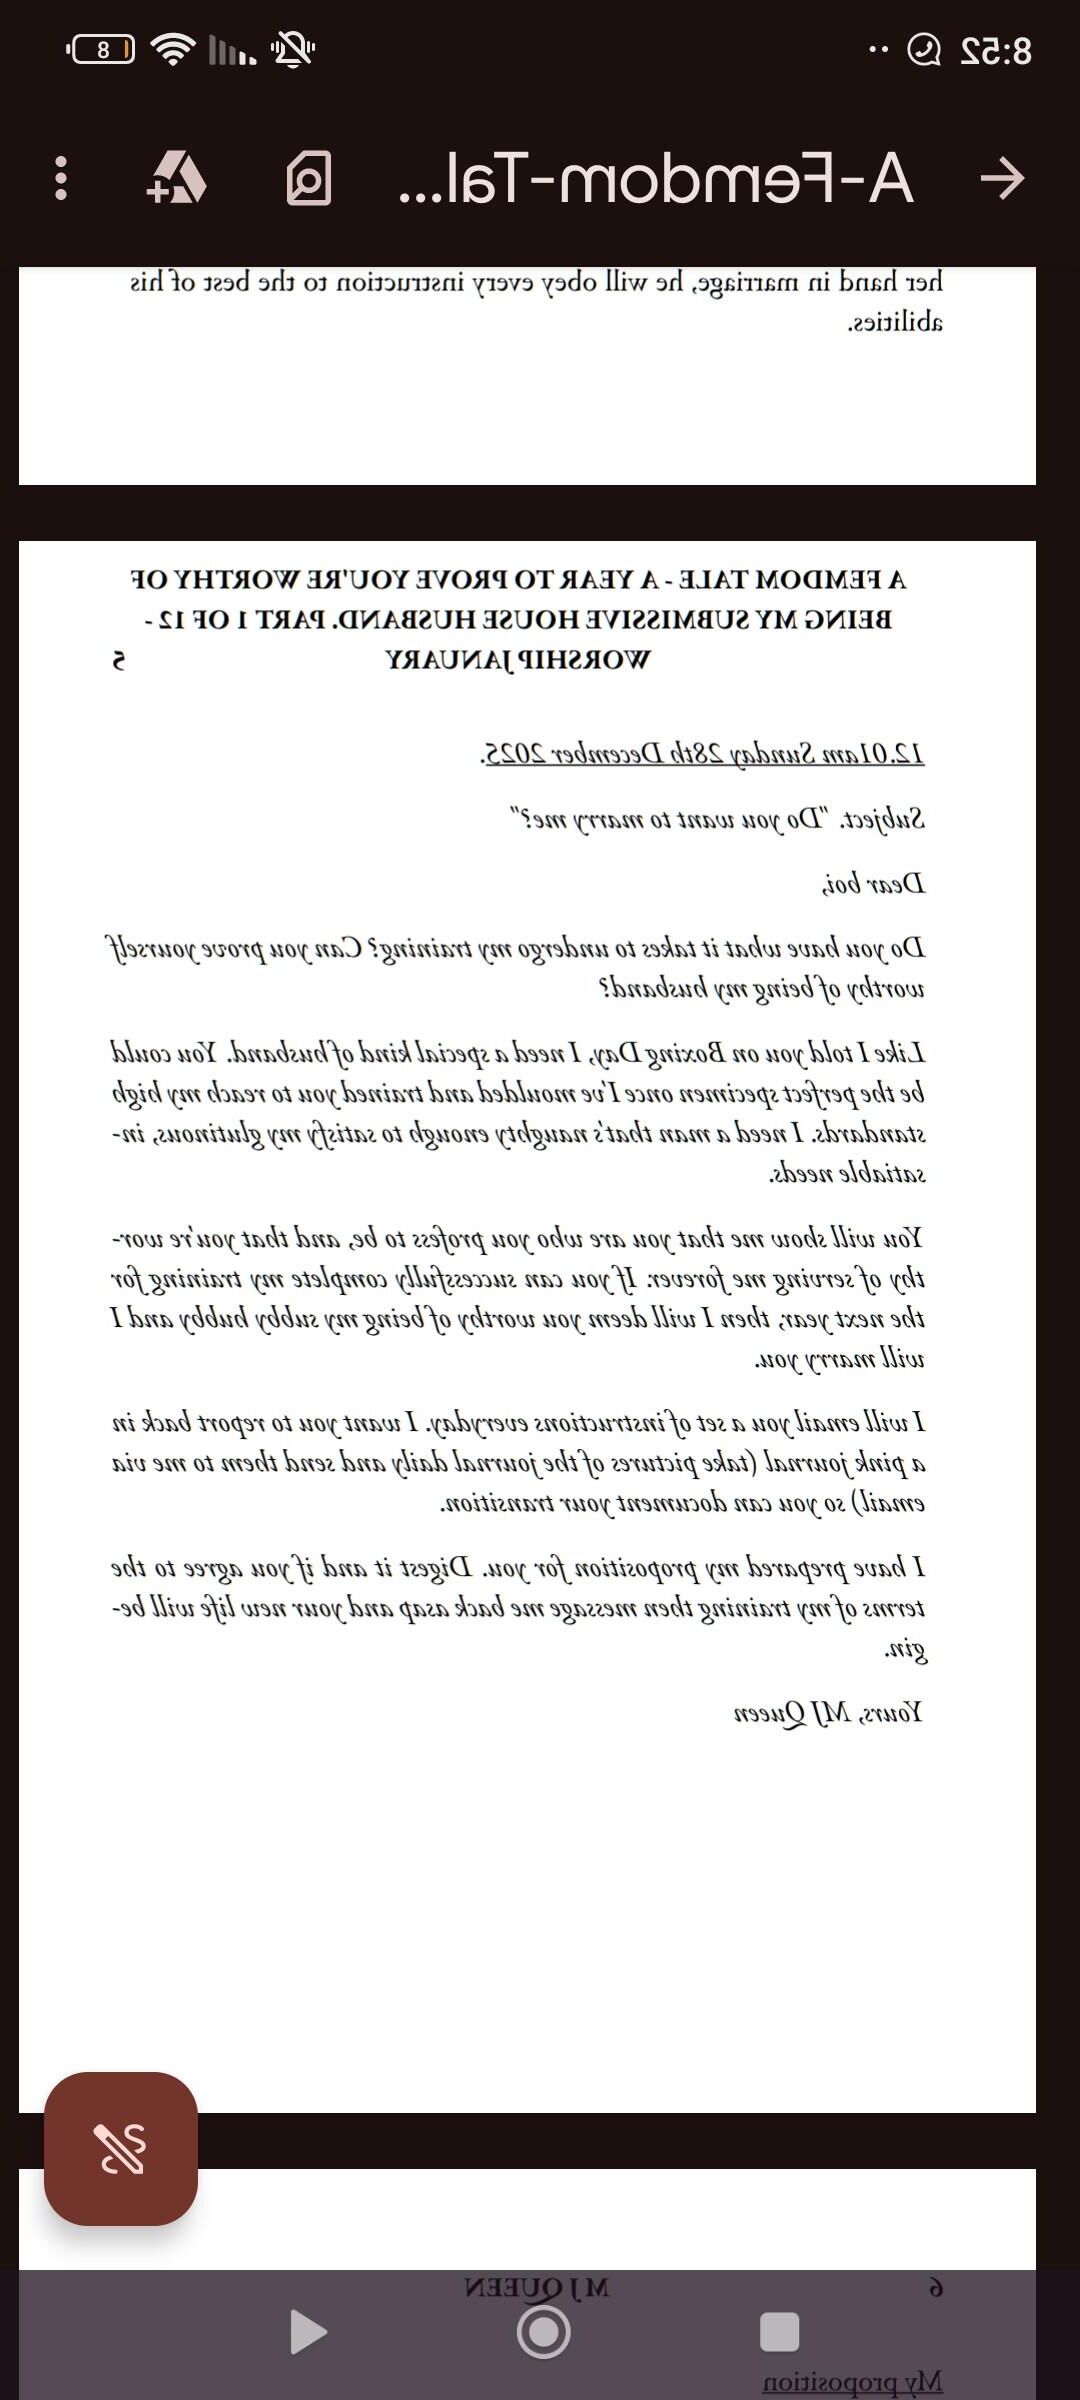 8:52
8
A-Femdom-Tal...
her hand in marriage, he will obey every instruction to the best of his
abilities.
A FEMDOM TALE - A YEAR TO PROVE YOU'RE WORTHY OF
BEING MY SUBMISSIVE HOUSE HUSBAND. PART 1 OF 12 -
WORSHIP JANUARY 5
12.01am Sunday 28th December 2025.
Subject. "Do you want to marry me?"
Dear boi,
Do you have what it takes to undergo my training? Can you prove yourself
worthy of being my husband?
Like I told you on Boxing Day, I need a special kind of husband. You could
be the perfect specimen once I've moulded and trained you to reach my high
standards. I need a man that's naughty enough to satisfy my glutinous, in-
satiable needs.
You will show me that you are who you profess to be, and that you're wor-
thy of serving me forever. If you can successfully complete my training for
the next year, then I will deem you worthy of being my subby hubby and I
will marry you.
I will email you a set of instructions everyday. I want you to report back in
a pink journal (take pictures of the journal daily and send them to me via
email) so you can document your transition.
I have prepared my proposition for you. Digest it and if you agree to the
terms of my training then message me back asap and your new life will be-
gin.
Yours, MJ Queen
6 MJ QUEEN
My proposition